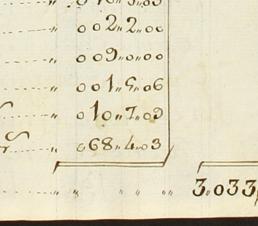 002.,2.,00
009.,0.,00
001.,5.,06
010.,7.,09
068.,4.,03
3.033